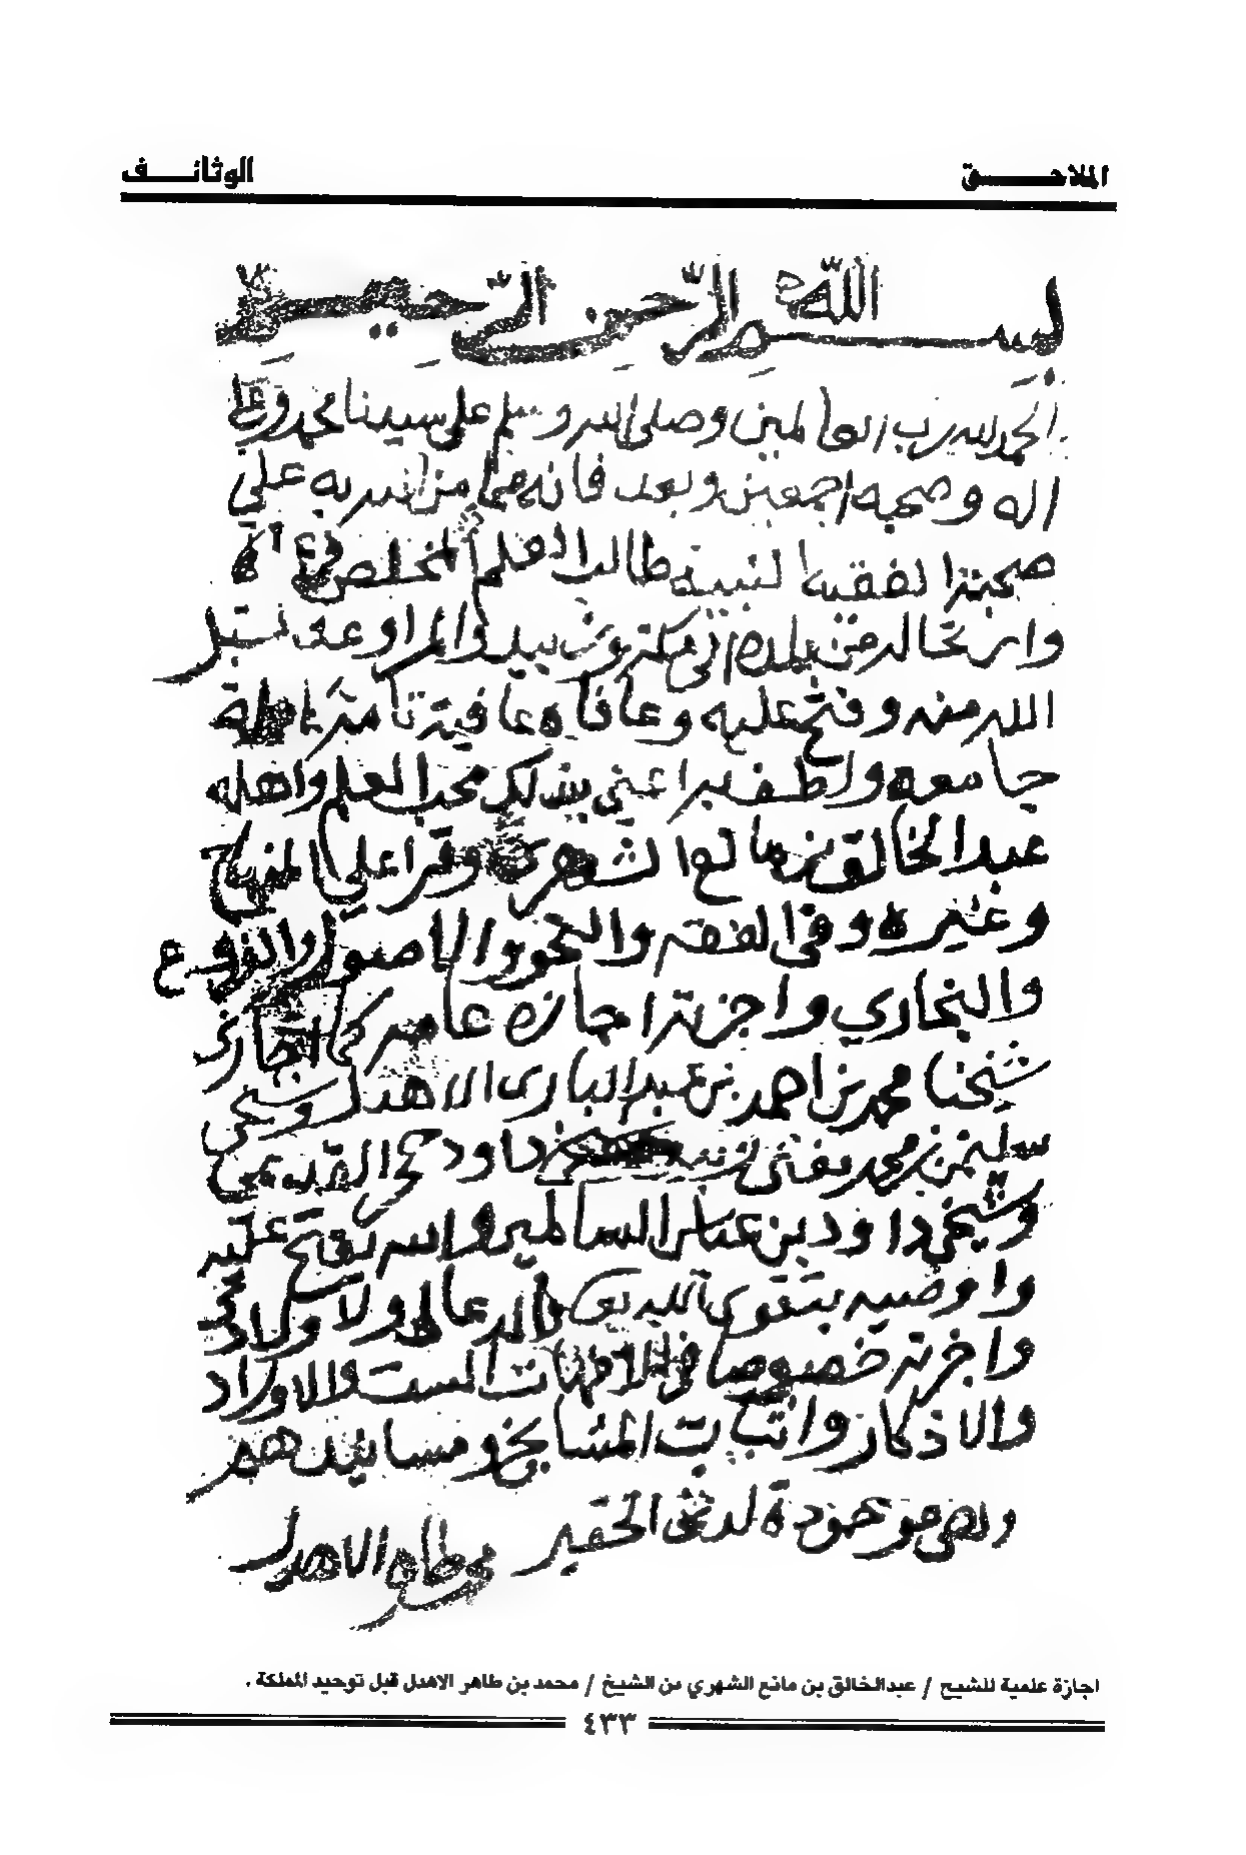 الملاحـــــــق
الوثائــــف
بسم الله الرحمن الرحيم
الحمد لله رب العالمين وصلى الله وسلم على سيدنا محمد وعلى
اله وصحبه اجمعين وبعد فانه مما من الله به على
صحبتنا لفقيه النبيه طالب العلم المخلص في
وارتحاله من بلده الى
الله منه وفتح عليه وعافاه عافية تامة
جامعه ولطف به اعني بذلك محب العلم واهله
عبد الخالق بن مانع الشهري وقرا علي المنهاج
وغيره وفي الفقه والنحو والاصول والفروع
والبخاري واجزته اجازه عامه كما اجازني
شيخنا محمد بن احمد بن عبد الباري الاهدل وشيخي
سليمن بن محمد مفتي زبيد داود حجر القديمي
وشيخي داود بن عباس السالمي والله يفتح عليه
واوصيه بتقوى الله والدعا لي ولاولادي
واجزته خصوصا في الامهات الست والاوراد
والاذكار واثبات المشايخ ومسانيدهم
وهي موجودة لدي الحقير
محمد طاهر الاهدل
اجازة علمية للشيخ / عبدالخالق بن مانع الشهري من الشيخ / محمد بن طاهر الاهدل قبل توحيد المملكة .
٤٣٣